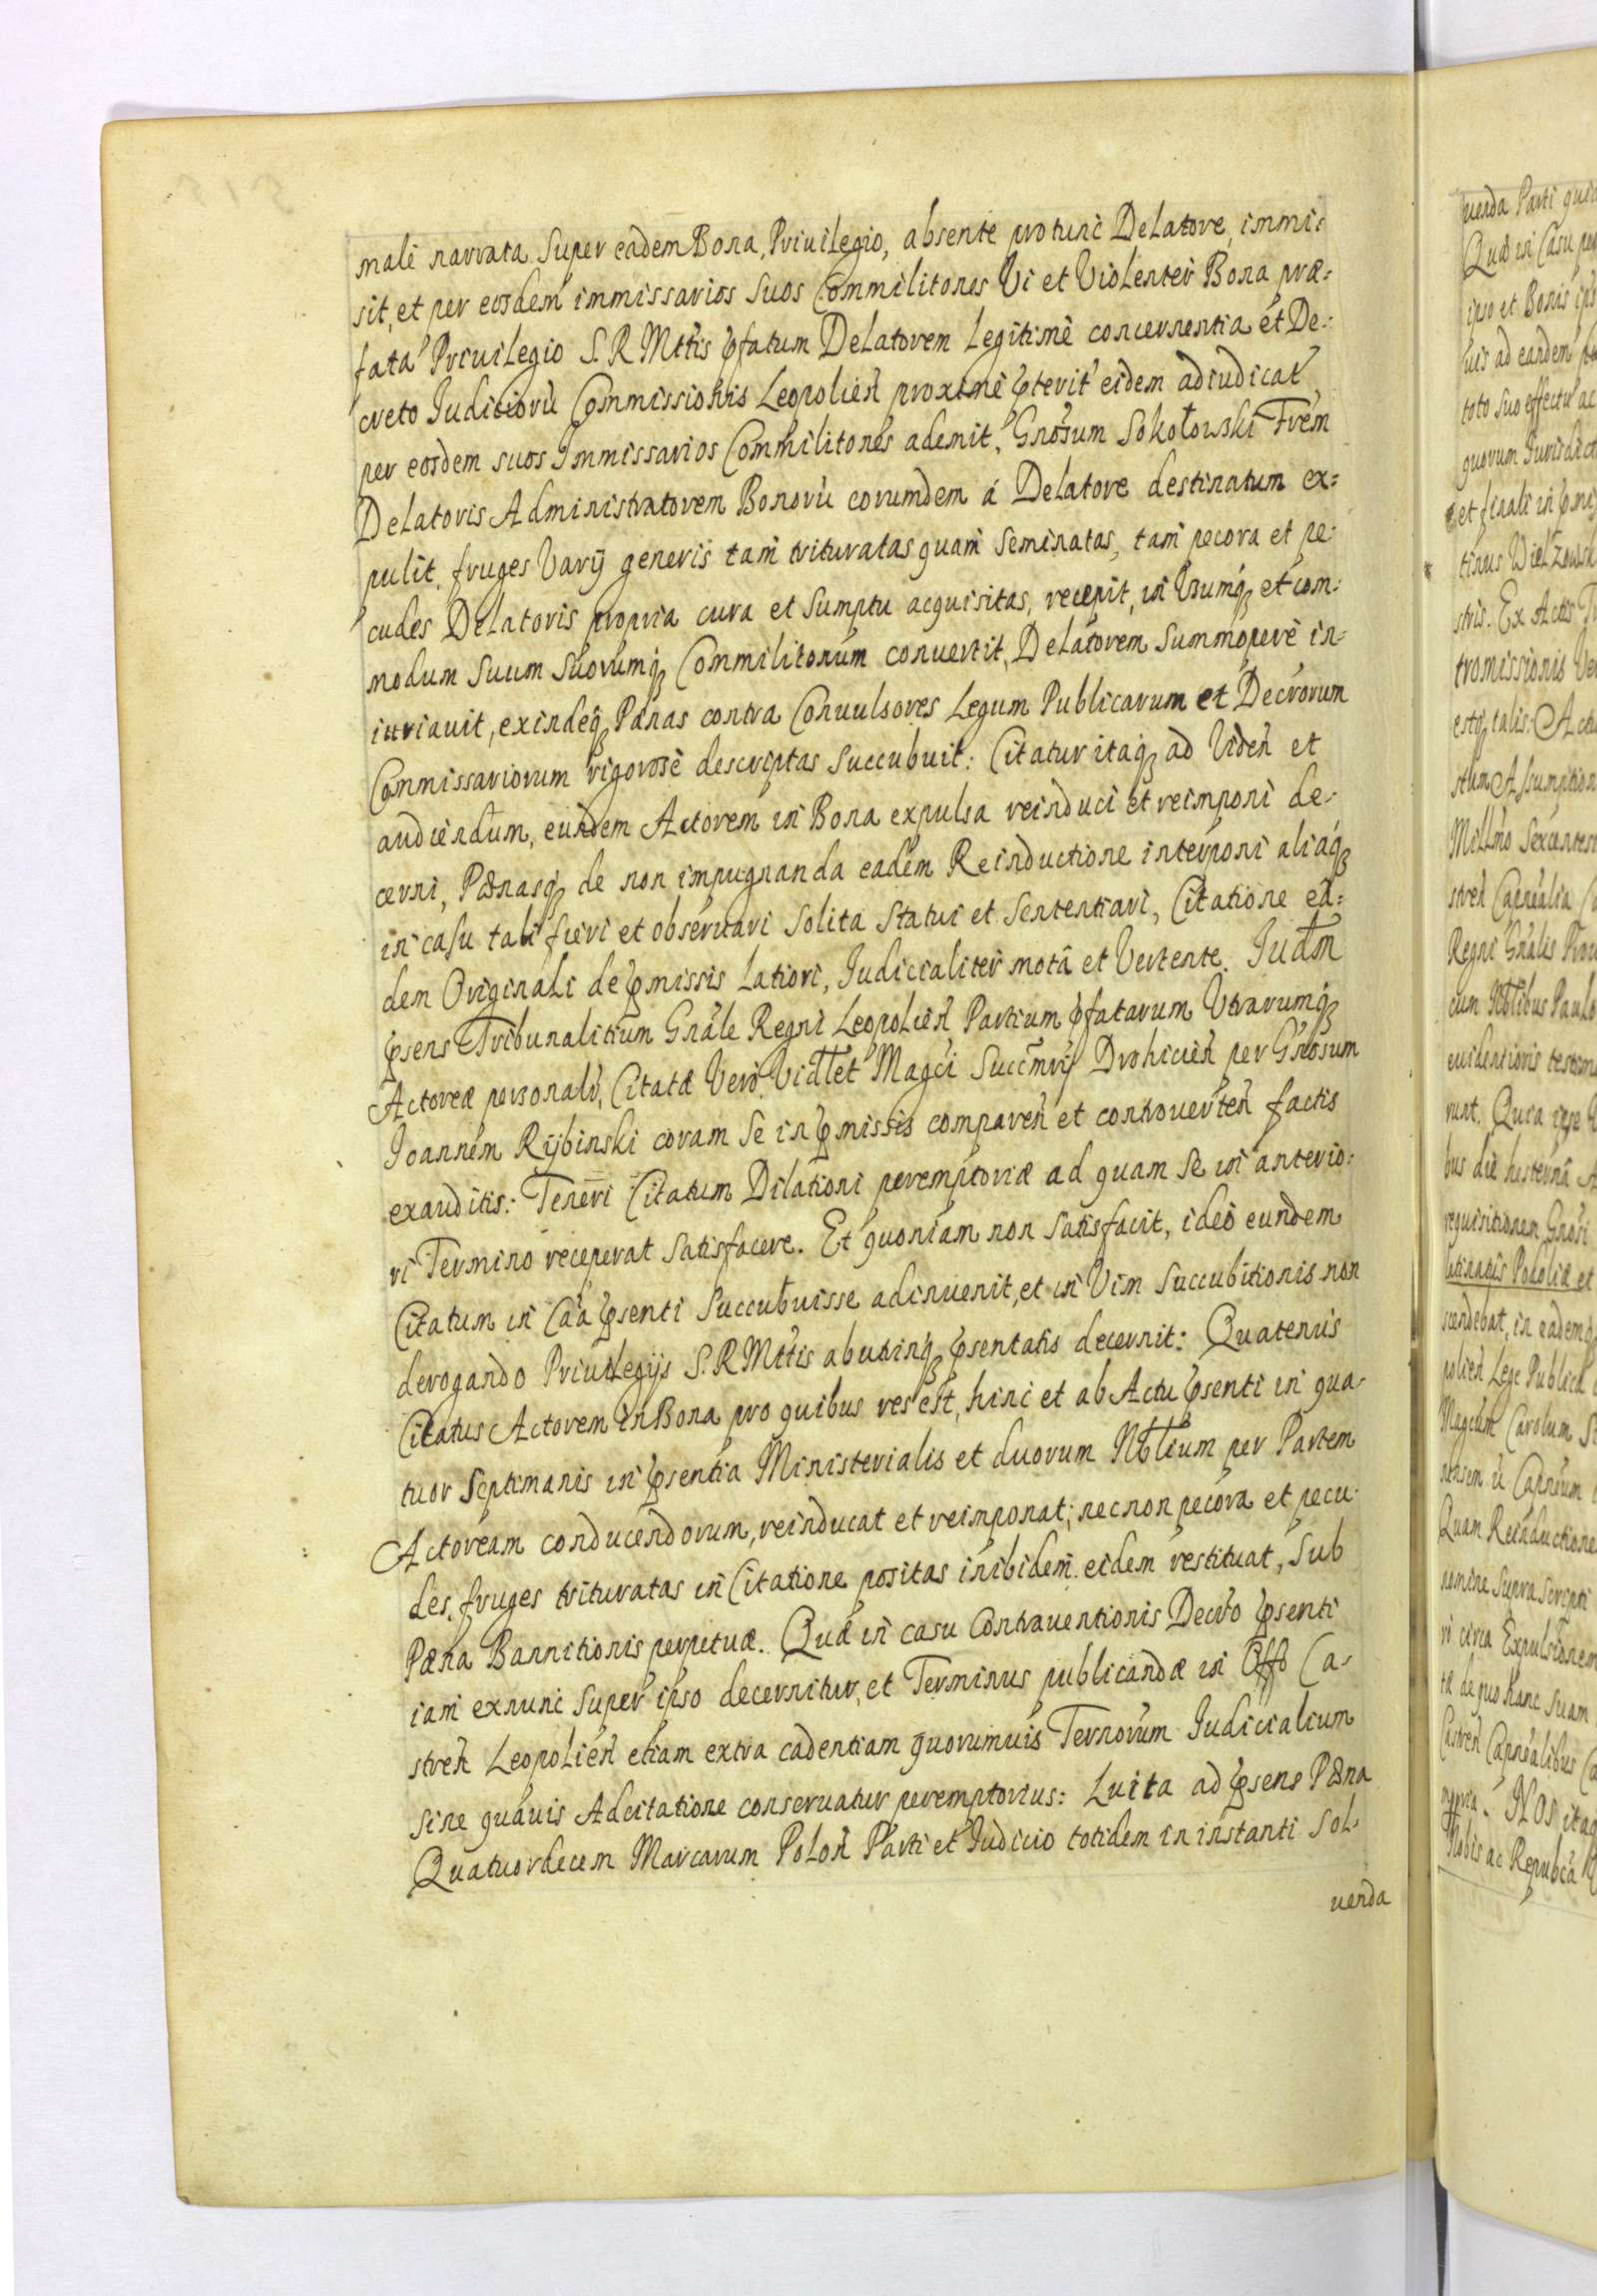 malè narrata super eadem Bona, Priuilegio, absente protunc Delatore, immi-
sit, et per eosdem immissarios suos Commilitones Vi et Violenter Bona præ-
fata Priuilegio S. R. Mttis pfatum Delatorem Legitimè concernentia et De-
creto Juditiorũ Commissionis Leopolień proximè pterit eidem adiudicat
per eosdem suos Immissarios Commilitones ademit, Gnosum Sokołowski Frem
Delatoris Administratorem Bonorũ eorumdem á Delatore destinatum ex-
pulit, fruges Varij generis tam trituratas quam seminatas, tam pecora et pe-
cudes Delatoris propria cura et sumptu acquisitas, recepit, in Usumq et com-
modum suum suorumq Commilitonum conuertit, Delatorem summoperè in-
iuriauit, exindeq Pænas contra Conuulsores Legum Publicarum et Decrorum
Commissariorum rigorosè descriptas succubuit: Citatur itaq ad Videń et
audiendum, eundem Actorem in Bona expulsa reinduci et reimponi de-
cerni, Pænasq de non impugnanda eadem Reinductione interponi aliaq
in casu tali fieri et obseruari solita statui et sententiari, Citatione ea-
dem Originali de pmissis Latiori, Judicialiter motâ et Vertente. Judm
psens Tribunalitium Gnale Regni Leopolień Partium pfatarum Utrarumq
Actoreæ personalr, Citatæ Verò Vidlet Magci Succmrij Drohicień per Gnosum
Joannem Rÿbinski coram se in pmissis compareń et controuerteń factis
exauditis: Teneri Citatum Dilationi peremptoriæ ad quam se in anterio-
ri Termino receperat satisfacere. Et quoniam non satisfacit, ideò eundem
Citatum in Caa psenti succubuisse adinuenit, et in Vim succubitionis non
derogando Priuilegijs S. R. Mttis abutinq psentatis decernit: Quatenus
Citatus Actorem in Bona pro quibus res est, hinc et ab Actu psenti in qua-
tuor septimanis in psentia Ministerialis et duorum Nblium per Partem
Actoream conducendorum, reinducat et reimponat; necnon pecora et pecu-
des, fruges trituratas in Citatione positas inibidem eidem restituat, sub
Pæna Bannitionis perpetuæ. Quæ in casu Contrauentionis Decrto psenti
iam exnunc super ipso decernitur, et Terminus publicandæ in Offo Ca-
streń Leopolień etiam extra cadentiam quorumuis Ternorum Judicialium
sine quauis Adcitatione conseruatur peremptorius: Luita ad psens Pæna
Quatuordecem Marcarum Poloń Parti et Judicio totidem in instanti sol-
uenda
uenda Parti
Quæ in Casu
ipso et Bonis
uis ad eandem
toto suo effectu ac
quorum
et finali in
tinus
stris. Ex Actis
tromissionis
estq talis: Actu
Assumption
Millmo Sexcentes
streń Capnealia
Regni Gnalis
cum Nblibus Paulo
euidentioris
runt. Quia ipse
bus die hesterna
requisitionem Gnosi
Podoliæ et
in eademq
polień Lege Publica
Magcum Carolum
Capneum
Quam Reinductione
nomine supra scripti
ri circa Expulsionem
de quo hanc suam
Castreń Capnealibus
Nos itaq
Nobis ac Republca